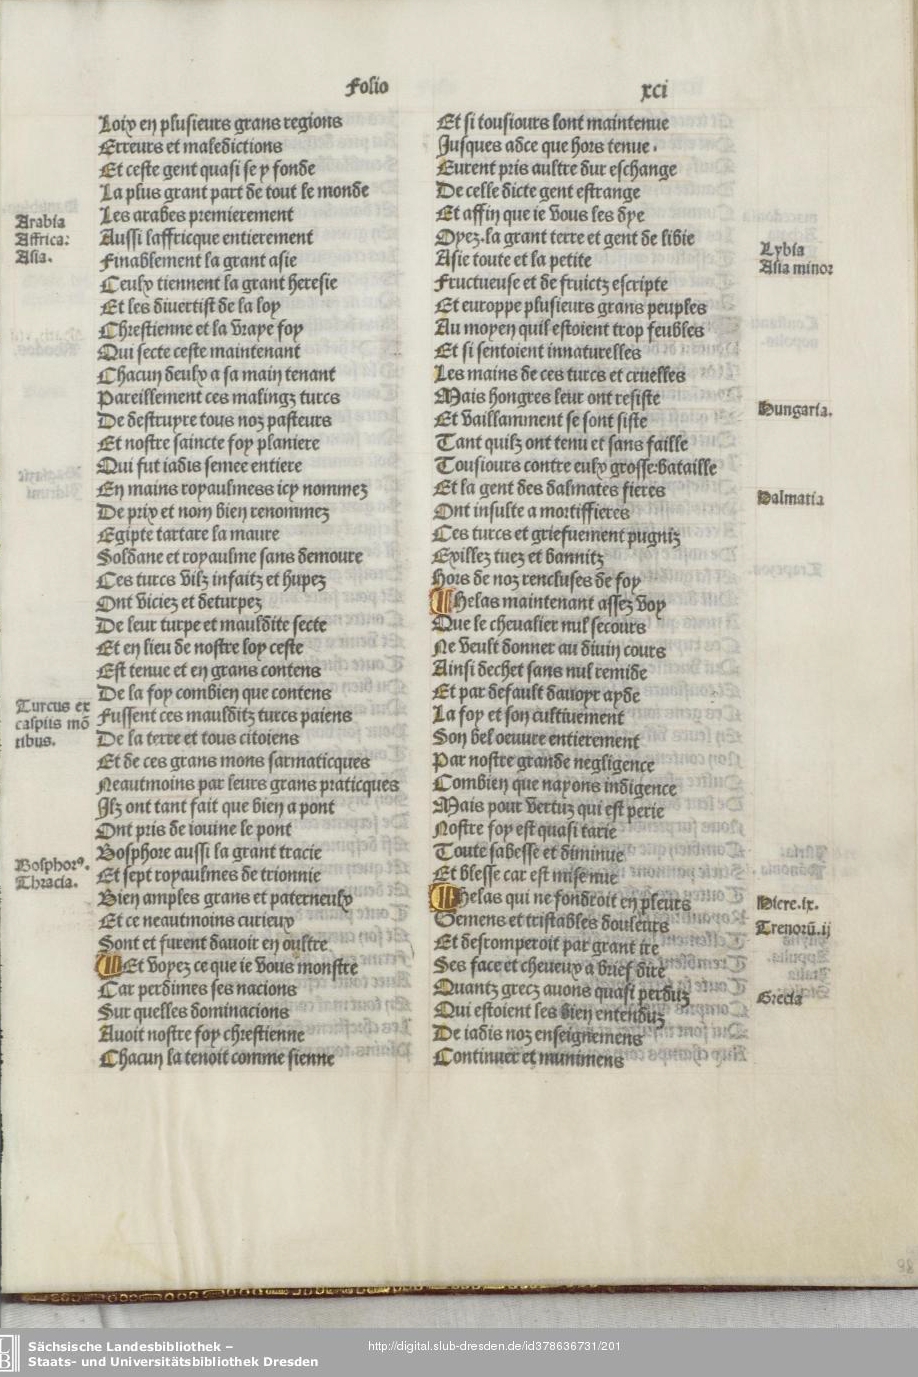 Folio
xci
Loix en plusieurs grans regions
Erreurs et maledictions
Et ceste gent quasi se y fonde
La plus grant part de tout le monde
Les arabes premierement
Aussi laffricque entierement
Finablement la grant asie
Ceulx tiennent la grant heresie
Et les divertist de la loy
Chrestienne et la vraye foy
Qui secte ceste maintenant
Chacun deulx a sa main tenant
Pareillement ces malingz turcs
De destruyre tous noz pasteurs
Et nostre saincte foy planiere
Qui fut iadis semee entiere
En mains royaulmess icy nommez
De prix et nom bien renommez
Egipte tartare la maure
Soldane et royaulme sans demoure
Ces turcs vilz infaitz et hupez
Ont viciez et deturpez
De leur turpe et mauldite secte
Et en lieu de nostre loy ceste
Est tenue et en grans contens
De la foy combien que contens
Fussent ces maulditz turcs paiens
De la terre et tous citoiens
Et de ces grans mons sarmaticques
Neautmoins par leurs grans praticques
Ilz ont tant fait que bien a pont
Ont pris de iouine le pont
Bosphore aussi la grant tracie
Et sept royaulmes de trionnie
Bien amples grans et paterneulx
Et ce neautmoins curieux
Sont et furent davoir en oultre
Et voyez ce que ie vous monstre
Car perdimes ses nacions
Sur quelles dominacions
Avoit nostre foy chrestienne
Chacun la tenoit comme sienne
Arabia
Affrica:
Asia.
Turcus ex
caspiis mō
tibus.
Bosphorꝰ.
Thracia.
Et si tousiours sont maintenue
Jusques adce que hors tenue.
Eurent pris aultre dur eschange
De celle dicte gent estrange
Et affin que ie vous les dye
Oyez.la grant terre et gent de libie
Asie toute et la petite
Fructueuse et de fruictz escripte
Et europpe plusieurs grans peuples
Au moyen quil estoient trop feubles
Et si sentoient innaturelles
Les mains de ces turcs et cruelles
Mais hongres leur ont resiste
Et vaillamment se sont siste
Tant quilz ont tenu et sans faille
Tousiours contre eulx grosse:bataille
Et la gent des dalmates fieres
Ont insulte a mortiffieres
Ces turcs et griefuement pugniz
Exillez tuez et bannitz
Hors de noz rencluses de foy
Helas maintenant assez voy
Que le chevalier nul secours
Ne veult donner au divin cours
Ainsi dechet sans nul remide
Et par default davoyr ayde
La foy et son cultivement
Son bel oeuure entierement
Par nostre grande negligence
Combien que nayons indigence
Mais pour vertuz qui est perie
Nostre foy est quasi tarie
Toute fabesse et diminue
Et blesse car est mise nue
Helas qui ne fondroit en pleurs
Gemens et tristables douleurs
Et desromperoit par grant ire
Ses face et cheveux a brief dire
Quantz grecz avons quasi perduz
Qui estoient les bien entenduz
De iadis noz enseignemens
Continuer et munimens
Lybia
Asia minor
Hungaria.
Dalmatia
Hiere.ix.
Trenorū.ij
Grecia
98
Sächsische Landesbibliothek –
Staats- und Universitätsbibliothek Dresden
http://digital.slub-dresden.de/id378636731/201